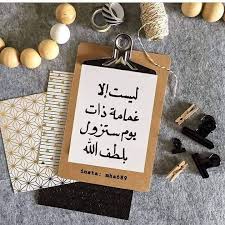 ليست إلا
غمامة ذات
يوم ستزول
بلطف الله
insta: mha689